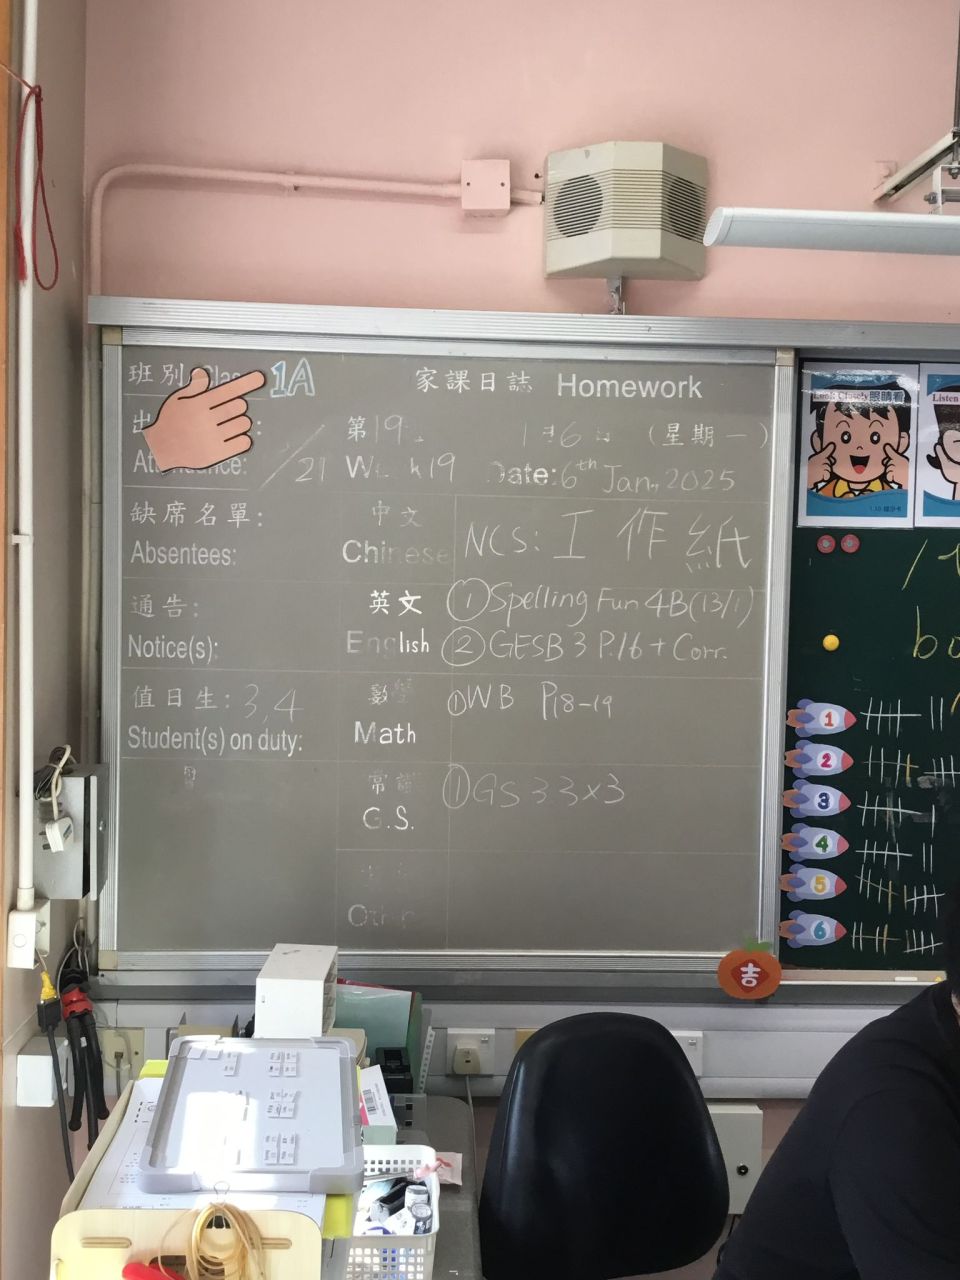 班別 Clas 1A
家課日誌 Homework
出
第19
1月6日 (星期一)
Attendance: /21
Week 19
Date: 6th Jan., 2025
缺席名單:
Absentees:
中文
Chinese
NCS: 工作紙
通告:
Notice(s):
英文
English
① Spelling Fun 4B (13/1)
② GESB 3 P.16 + Corr.
值日生: 3, 4
Student(s) on duty:
數學
Math
① WB P18-19
常識
G.S.
① GS 33x3
Other
Look Closely 眼睛看
Listen
吉
1
2
3
4
5
6